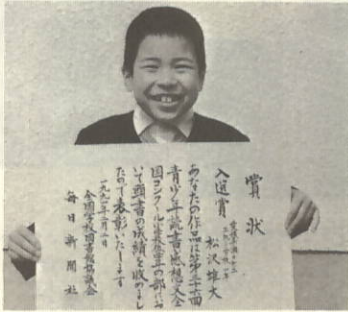 賞状
入選賞
松沢雄大
あなたの作品は第三十四回
青少年読書感想文全
国コンクール
の部にお
いて頭書の成績を収めまし
たので表彰いたします
一九八九年二月三日
全国学校図書館協議会
毎日新聞社